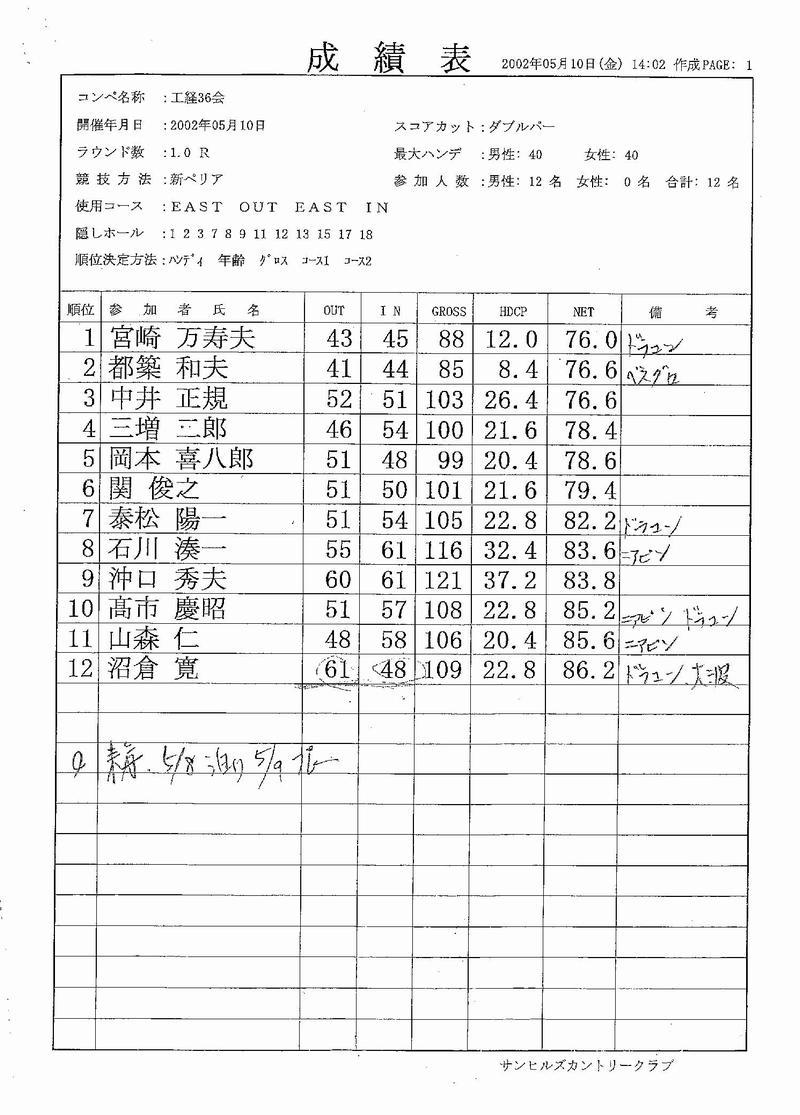 成績表 2002年05月10日(金) 14:02 作成PAGE: 1
コンペ名称 :工経36会
開催年月日 :2002年05月10日 スコアカット:ダブルパー
ラウンド数 :1.0 R 最大ハンデ :男性: 40 女性: 40
競技方法 :新ペリア 参加人数 :男性: 12 名 女性: 0 名 合計: 12 名
使用コース :EAST OUT EAST IN
隠しホール :1 2 3 7 8 9 11 12 13 15 17 18
順位決定方法:ﾊﾝﾃﾞｨ 年齢 ｸﾞﾛｽ ｺｰｽ1 ｺｰｽ2
順位 参加者氏名 OUT IN GROSS HDCP NET 備考
1 宮崎 万寿夫 43 45 88 12.0 76.0 ドラコン
2 都築 和夫 41 44 85 8.4 76.6 ベスグロ
3 中井 正規 52 51 103 26.4 76.6
4 三増 二郎 46 54 100 21.6 78.4
5 岡本 喜八郎 51 48 99 20.4 78.6
6 関 俊之 51 50 101 21.6 79.4
7 泰松 陽一 51 54 105 22.8 82.2 ドラコン
8 石川 湊一 55 61 116 32.4 83.6 ニアピン
9 沖口 秀夫 60 61 121 37.2 83.8
10 髙市 慶昭 51 57 108 22.8 85.2 ニアピン ドラコン
11 山森 仁 48 58 106 20.4 85.6 ニアピン
12 沼倉 寛 61 48 109 22.8 86.2 ドラコン 大波
5/8 泊り 5/9 プレー
サンヒルズカントリークラブ